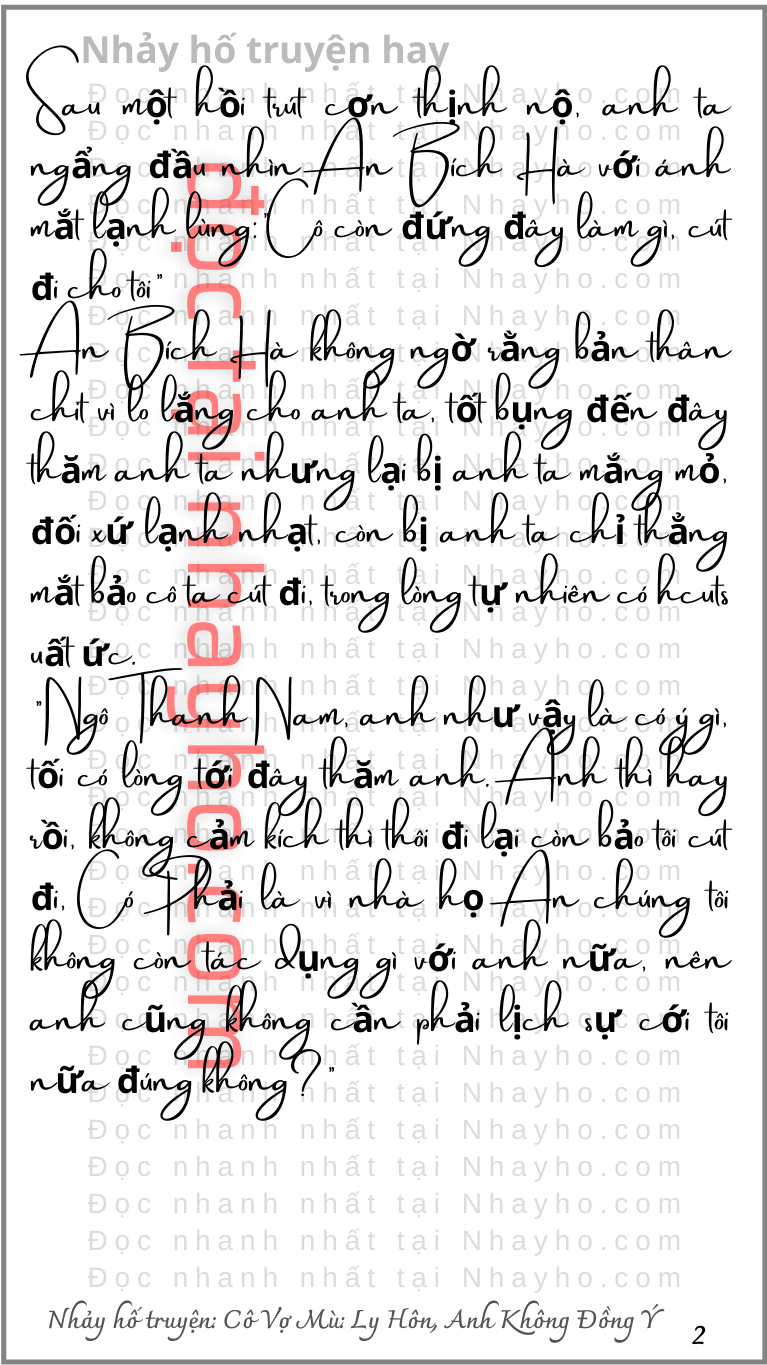 Nhảy hố truyện hay
Sau một hồi trút cơn thịnh nộ, anh ta
ngẩng đầu nhìn An Bích Hà với ánh
mắt lạnh lùng: "Cô còn đứng đây làm gì, cút
đi cho tôi"
An Bích Hà không ngờ rằng bản thân
chit vì lo lắng cho anh ta, tốt bụng đến đây
thăm anh ta nhưng lại bị anh ta mắng mỏ,
đối xứ lạnh nhạt, còn bị anh ta chỉ thẳng
mắt bảo cô ta cút đi, trong lòng tự nhiên có hcuts
uất ức.
"Ngô Thanh Nam, anh như vậy là có ý gì,
tối có lòng tới đây thăm anh, Anh thì hay
rồi, không cảm kích thì thôi đi lại còn bảo tôi cút
đi, Có Phải là vì nhà họ An chúng tôi
không còn tác dụng gì với anh nữa, nên
anh cũng không cần phải lịch sự cới tôi
nữa đúng không?"
đọc tại nhayho.com
Đọc nhanh nhất tại Nhayho.com
Đọc nhanh nhất tại Nhayho.com
Đọc nhanh nhất tại Nhayho.com
Đọc nhanh nhất tại Nhayho.com
Đọc nhanh nhất tại Nhayho.com
Nhảy hố truyện: Cô Vợ Mù: Ly Hôn, Anh Không Đồng Ý
2